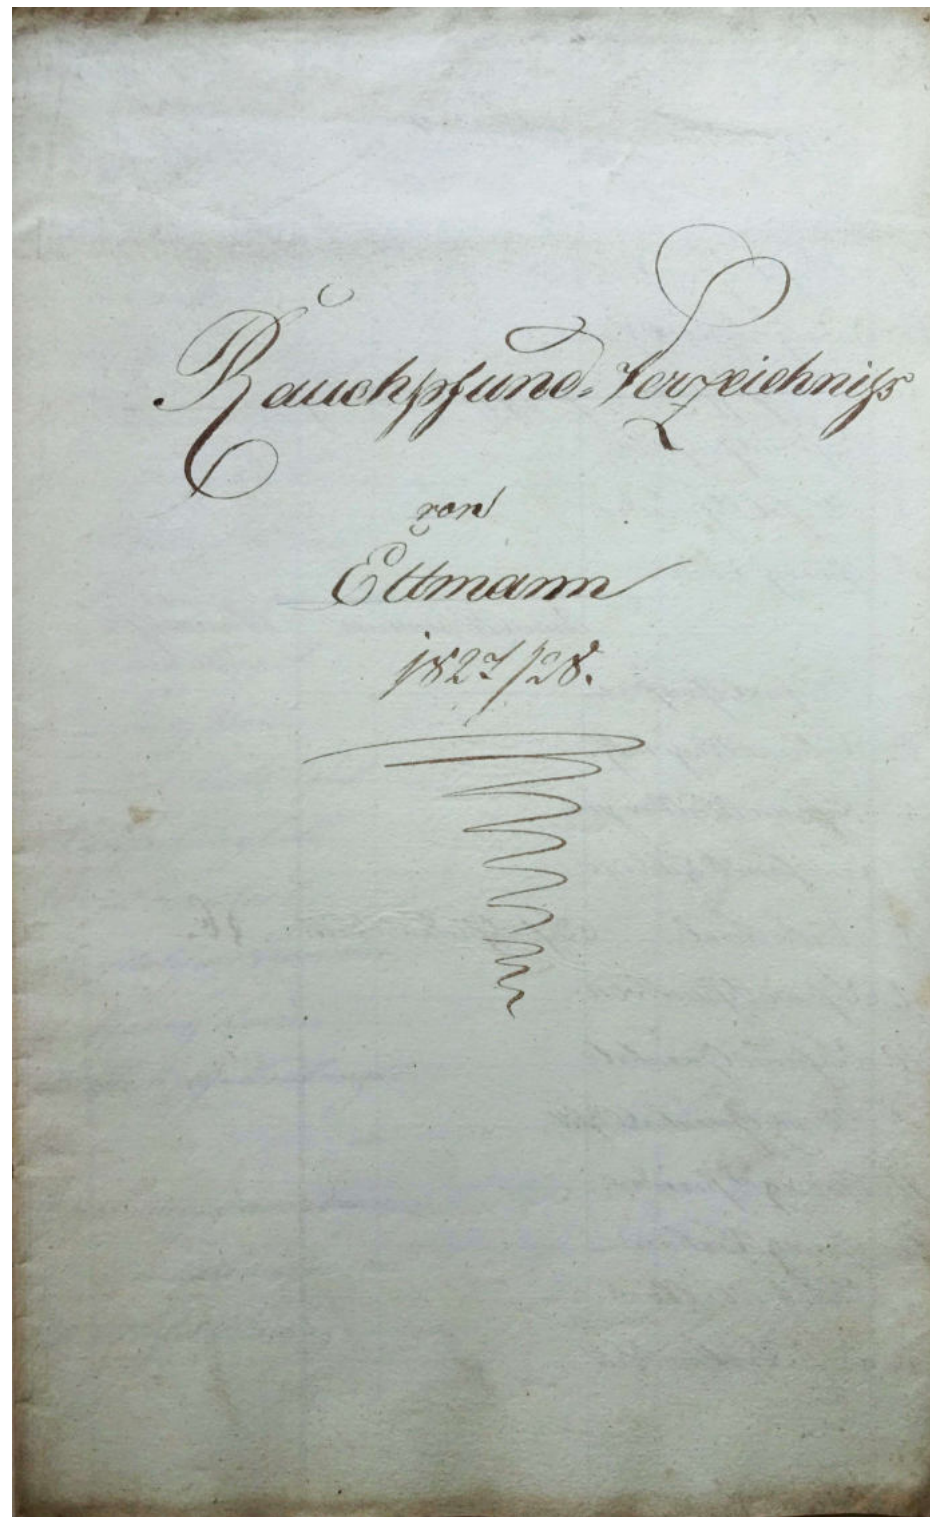 Rauchpfund-Verzeichniß
von
Eltmann
1827/28.